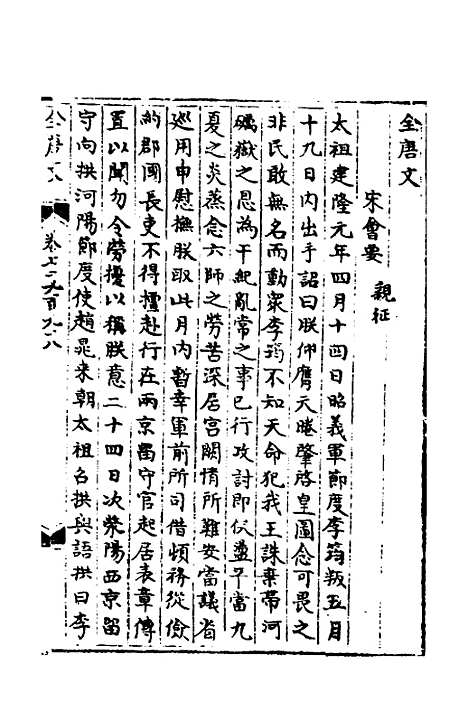 全唐文
宋會要 親征
太祖建隆元年四月十四日昭義軍節度李筠叛五月
十九日內出手詔曰朕仰膺天睠肇啓皇圖念可畏之
非民敢無名而動衆李筠不知天命犯我王誅棄帶河
礪嶽之恩為干紀亂常之事已行攻討即伏盪平當九
夏之炎蒸念六師之勞苦深居宮闕情所難安當議省
巡用申慰撫朕取此月內暫幸軍前所司借頓務從儉
約郡國長吏不得擅赴行在兩京留守官起居表章傳
置以聞勿令勞擾以稱朕意二十四日次滎陽西京留
守向拱河陽節度使趙晁来朝太祖召拱與語拱曰李
全唐文 卷七千九百九八